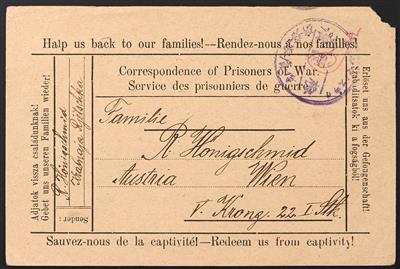 Help us back to our families!—Rendez-nous à nos familles!
Correspondence of Prisoners of War.
Service des prisonniers de guerre.
Familie
R. Honigschmid
Austria Wien
V. Krong. 22 I Stk.
Sauvez-nous de la captivité!—Redeem us from captivity!
Adjatok vissza családunknak!
Gebt uns unseren Familien wieder!
Sender:
R. Honigschmid
Erlöset uns aus der Gefangenschaft!
Szabadítsatok ki a fogságból!